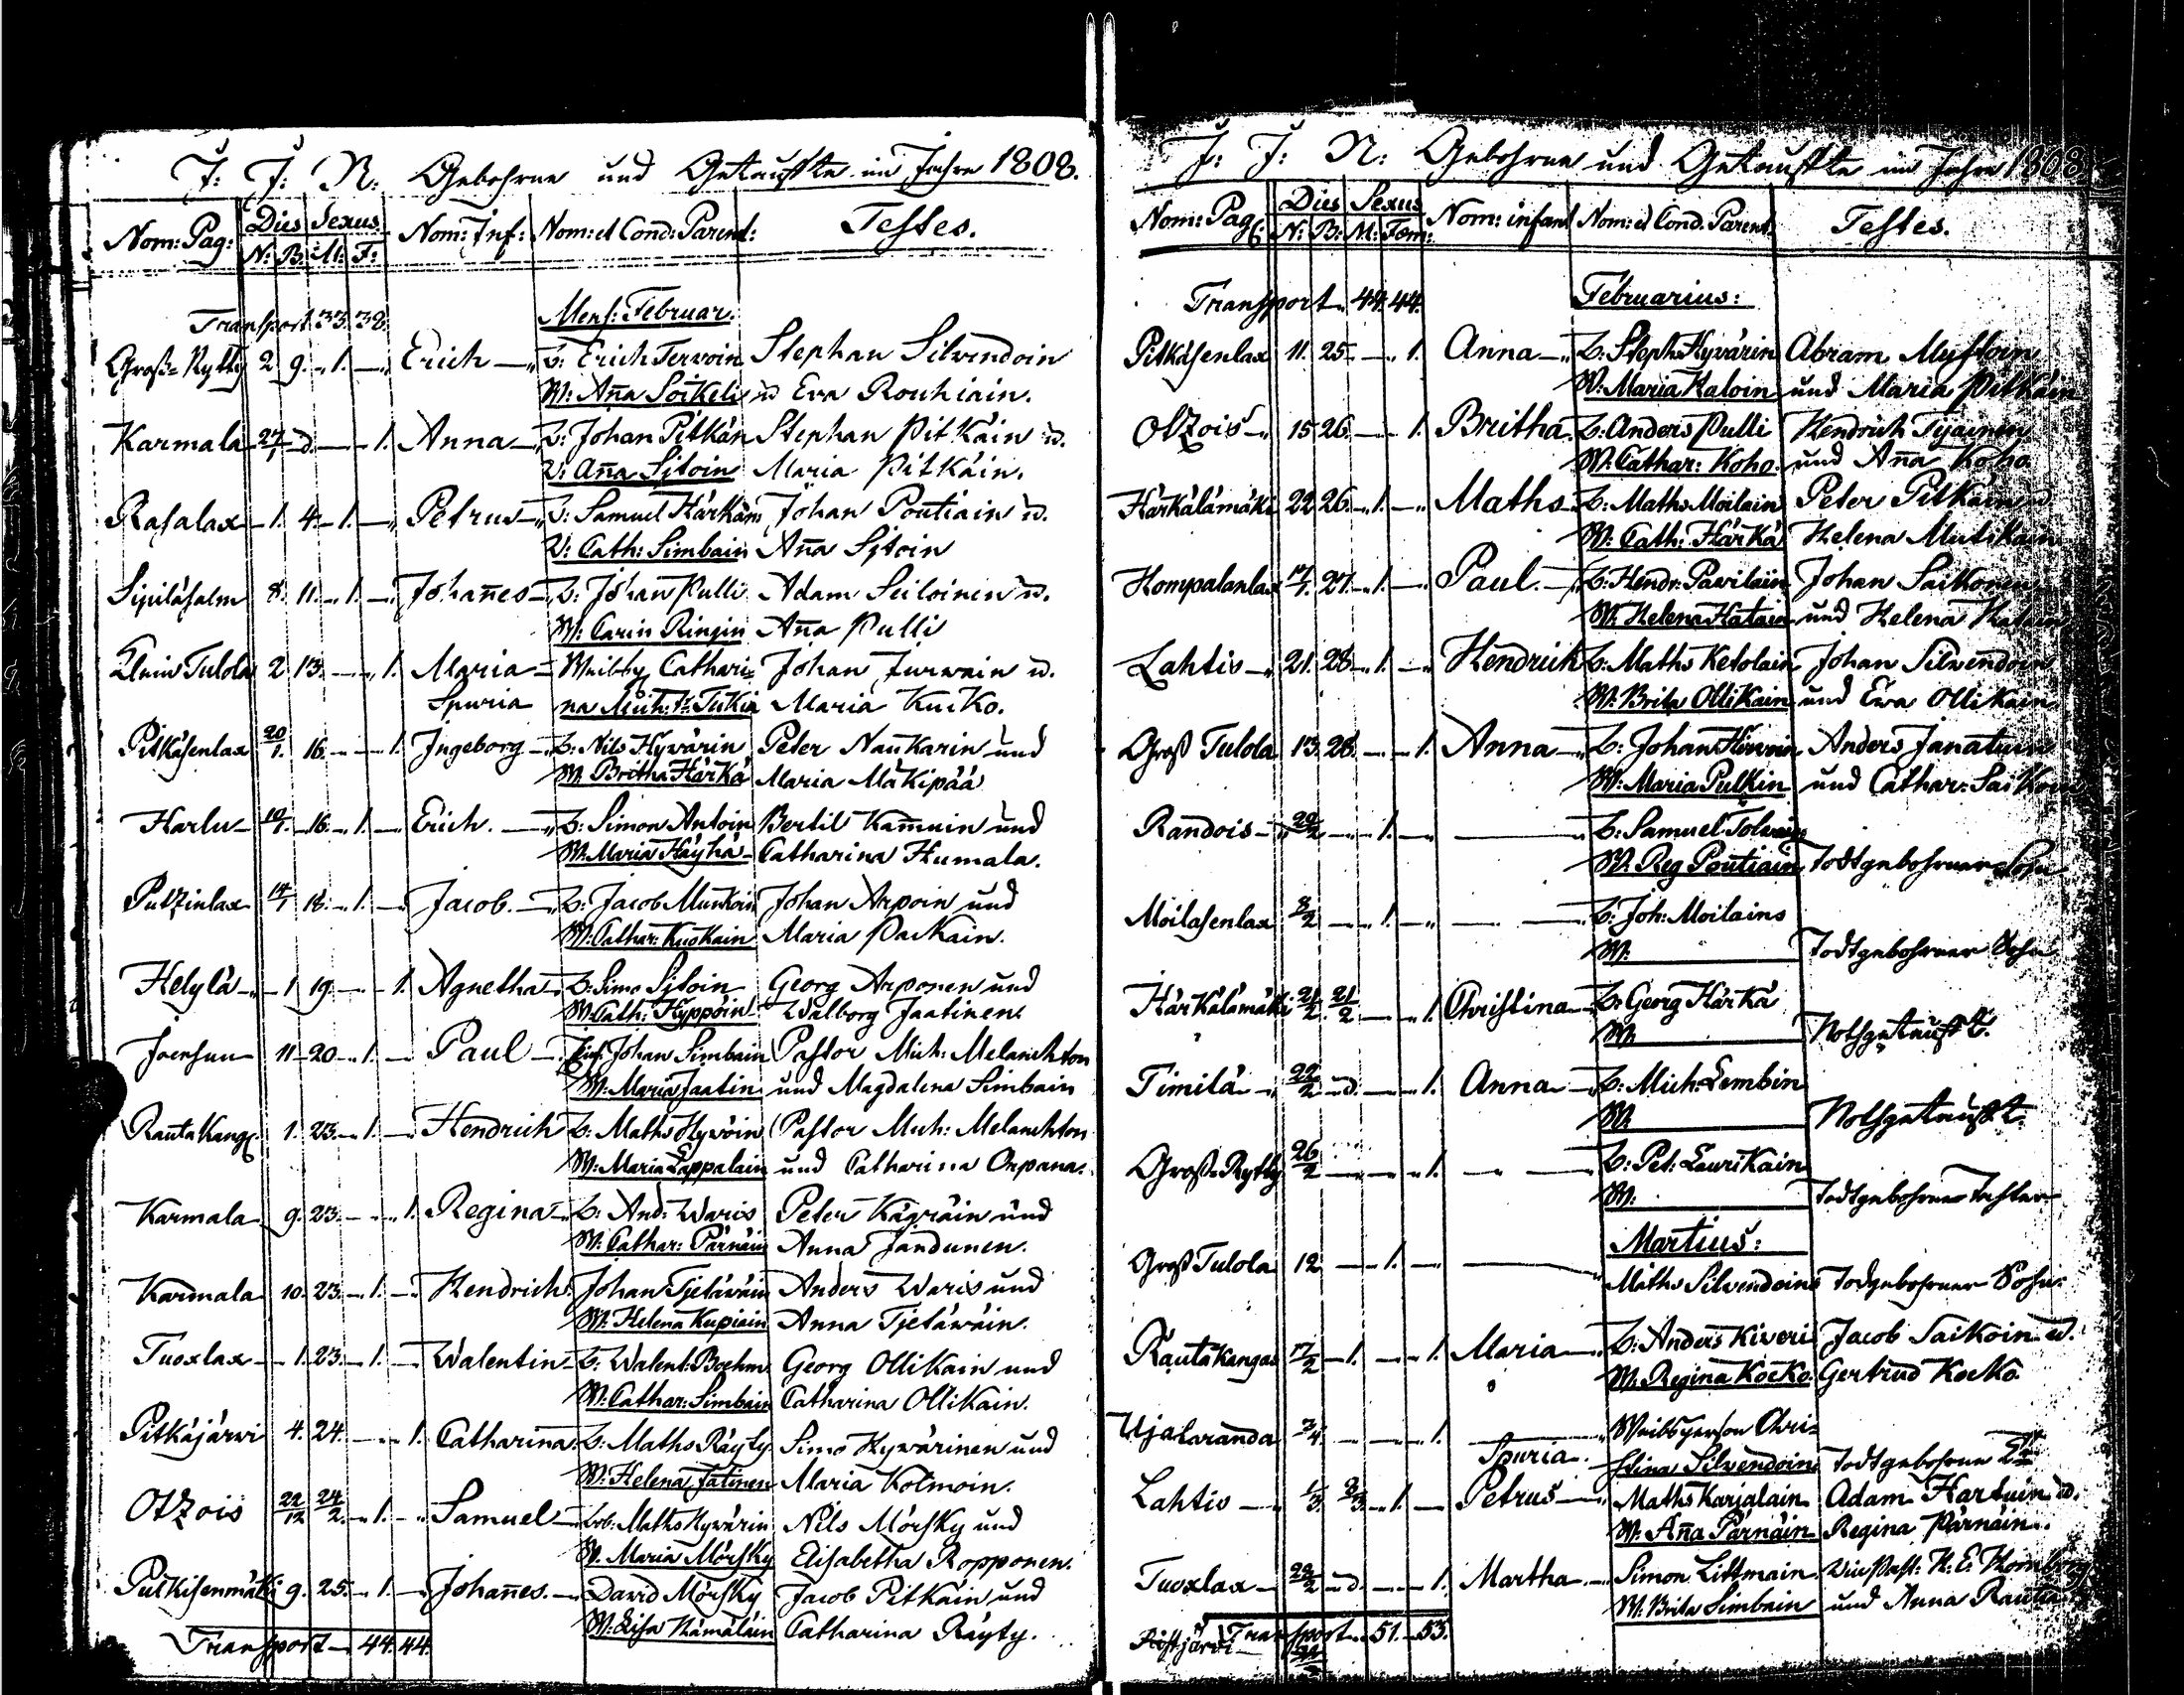 J: J: N: Gebohrne und Getauffte im Jahre 1808.
Nom: Pag: Dies Sexus Nom: Inf: Nom: et Cond: Parent: Testes.
N: B: M: F:
Transport 33. 38. Mens: Februar.
Groß-Rytty 2 9. 1. Erich B: Erich Tervoin Stephan Silvendoin
W: Aña Soikeli u Eva Rouhiain.
Karmala 27/1 1. Anna B: Johan Pitkän Stephan Pitkäin u.
W: Aña Sitoin Maria Pitkäin.
Rasalax 1. 4. 1. Petrus B: Samuel Härkäin Johan Poutiain u.
W: Cath: Simbain Aña Sitoin
Sipiläsalm 8. 11. 1. Johañes B: Johan Pulli Adam Seiloinen u.
W: Carin Ringin Aña Pulli
Klein Tulola 2 13. 1. Maria Weibsp Cathari= Johan Jurwain u.
Spuria na Mich: t: Tukia Maria Kucko.
Pitkäsenlax 20/1. 16. 1. Ingeborg B: Nils Hyvärin Peter Naukarin und
W: Britha Härkä Maria Mäkipää
Harlu 10/1. 16. 1. Erich. B: Simon Antoin Bertil Kam̃uin und
W: Maria Häyhä Catharina Humala.
Putzinlax 14/1 18. 1. Jacob. B: Jacob Munkoin Johan Arpoin und
W: Cathar: Kuokain Maria Packain.
Helylä 1 19. 1. Agnetha B: Simo Sitoin Georg Arponen und
W: Cath: Hyppöin Walborg Jaatinen
Joensuu 11 20. 1. Paul Johan Simbain Pastor Mich: Melanchton
W: Maria Jaatin und Magdalena Simbain
Rautakang. 1. 23. 1. Hendrich B: Maths Hyvöin Pastor Mich: Melanchton
W: Maria Lappalain und Catharina Orpana.
Karmala 9. 23. 1. Regina B: And: Waris Peter Kägräin und
W: Cathar: Pärnäin Anna Jandunen.
Karmala 10. 23. 1. Hendrich. Johan Tjeläväin Anders Waris und
W: Helena Kupiain Anna Tjeläwäin.
Tuoxlax 1. 23. 1. Walentin B: Walent: Boehm Georg Ollikain und
W: Cathar: Simbain Catharina Ollikain.
Pitkäjärwi 4. 24. 1. Catharina B: Maths Räyty Simo Hyvärinen und
W: Helena Jatinen Maria Kolmoin.
Otzois 22/12 24/2. 1. Samuel Lob: Maths Hyvärin Nils Mörsky und
W. Maria Mörsky Elisabetha Ropponen.
Putkisenmäki 9. 25. 1. Johañes. David Mörsky Jacob Pitkäin und
W: Lisa Hämäläin Catharina Räyty.
Transport 44. 44.
J: J: N: Gebohrne und Getauffte im Jahre 1808
Nom: Pag: Dies Sexus Nom: infant Nom: et Cond. Parent. Testes.
N: B: M: Fœm:
Transport 44. 44. Februarius:
Pitkäsenlax 11. 25. 1. Anna B: Steph Hyvärin Abram
W: Maria Kaloin und Maria Pitkäin
Otzois 15 26. 1. Britha B: Anders Pulli Hendrich Tijainen
W: Cathar: Koho. und Aña Koho.
Härkälämäki 22 26. 1. Maths B: Maths Moilain Peter Pitkäin
W: Cath: Härkä Helena Mutikain
Kompalanlax 17/1. 27. 1. Paul. B: Hendr: Pawilain Johan Saikonen
W: Helena Hatain und Helena Hatain
Lahtis 21. 28. 1. Hendrich B: Maths Ketolain Johan Silvendoin
W: Brita Ollikain und Ewa Ollikain
Groß Tulola 13. 28. 1. Anna B: Johan Hirvoin Anders Janatuin
W: Maria Pulkin und Cathar: Saikoin
Randois 22/2 1. B: Samuel Tolwain
W: Reg Poutiain Todtgebohrner Sohn
Moilasenlax 8/2 1. B: Joh: Moilains
W: Todtgebohrner Sohn
Härkälämäki 21/2 21/2 1. Christina B: Georg Härkä
W: Nothgetaufft.
Timilä 22/2 1. Anna B: Mich: Lembin
W: Nothgetaufft.
Groß-Rytty 26/2 1. B: Pet: Laurikain
W: Todtgebohrne Tochter
Martius:
Groß Tulola 12 1. Maths Silvendoins Todgebohrner Sohn.
Rautakangas 17/2 1. 1. Maria B: Anders Kiveri Jacob Saikoin u.
W: Regina Kocko. Gertrud Kocko.
Ujalaranda 3/4. 1. Weibsperson Chri=
Spuria. stina Silvendoin Todtgebohrne
Lahtis 1/3. 8/3. 1. Petrus Maths Karjalain Adam Hartuin u.
W: Aña Pärnäin Regina Pärnäin.
Tuoxlax 22/2 1. Martha Simon Littmain
W: Brita Simbain und Anna Rautia
Transport 51. 53.
Ristjärvi